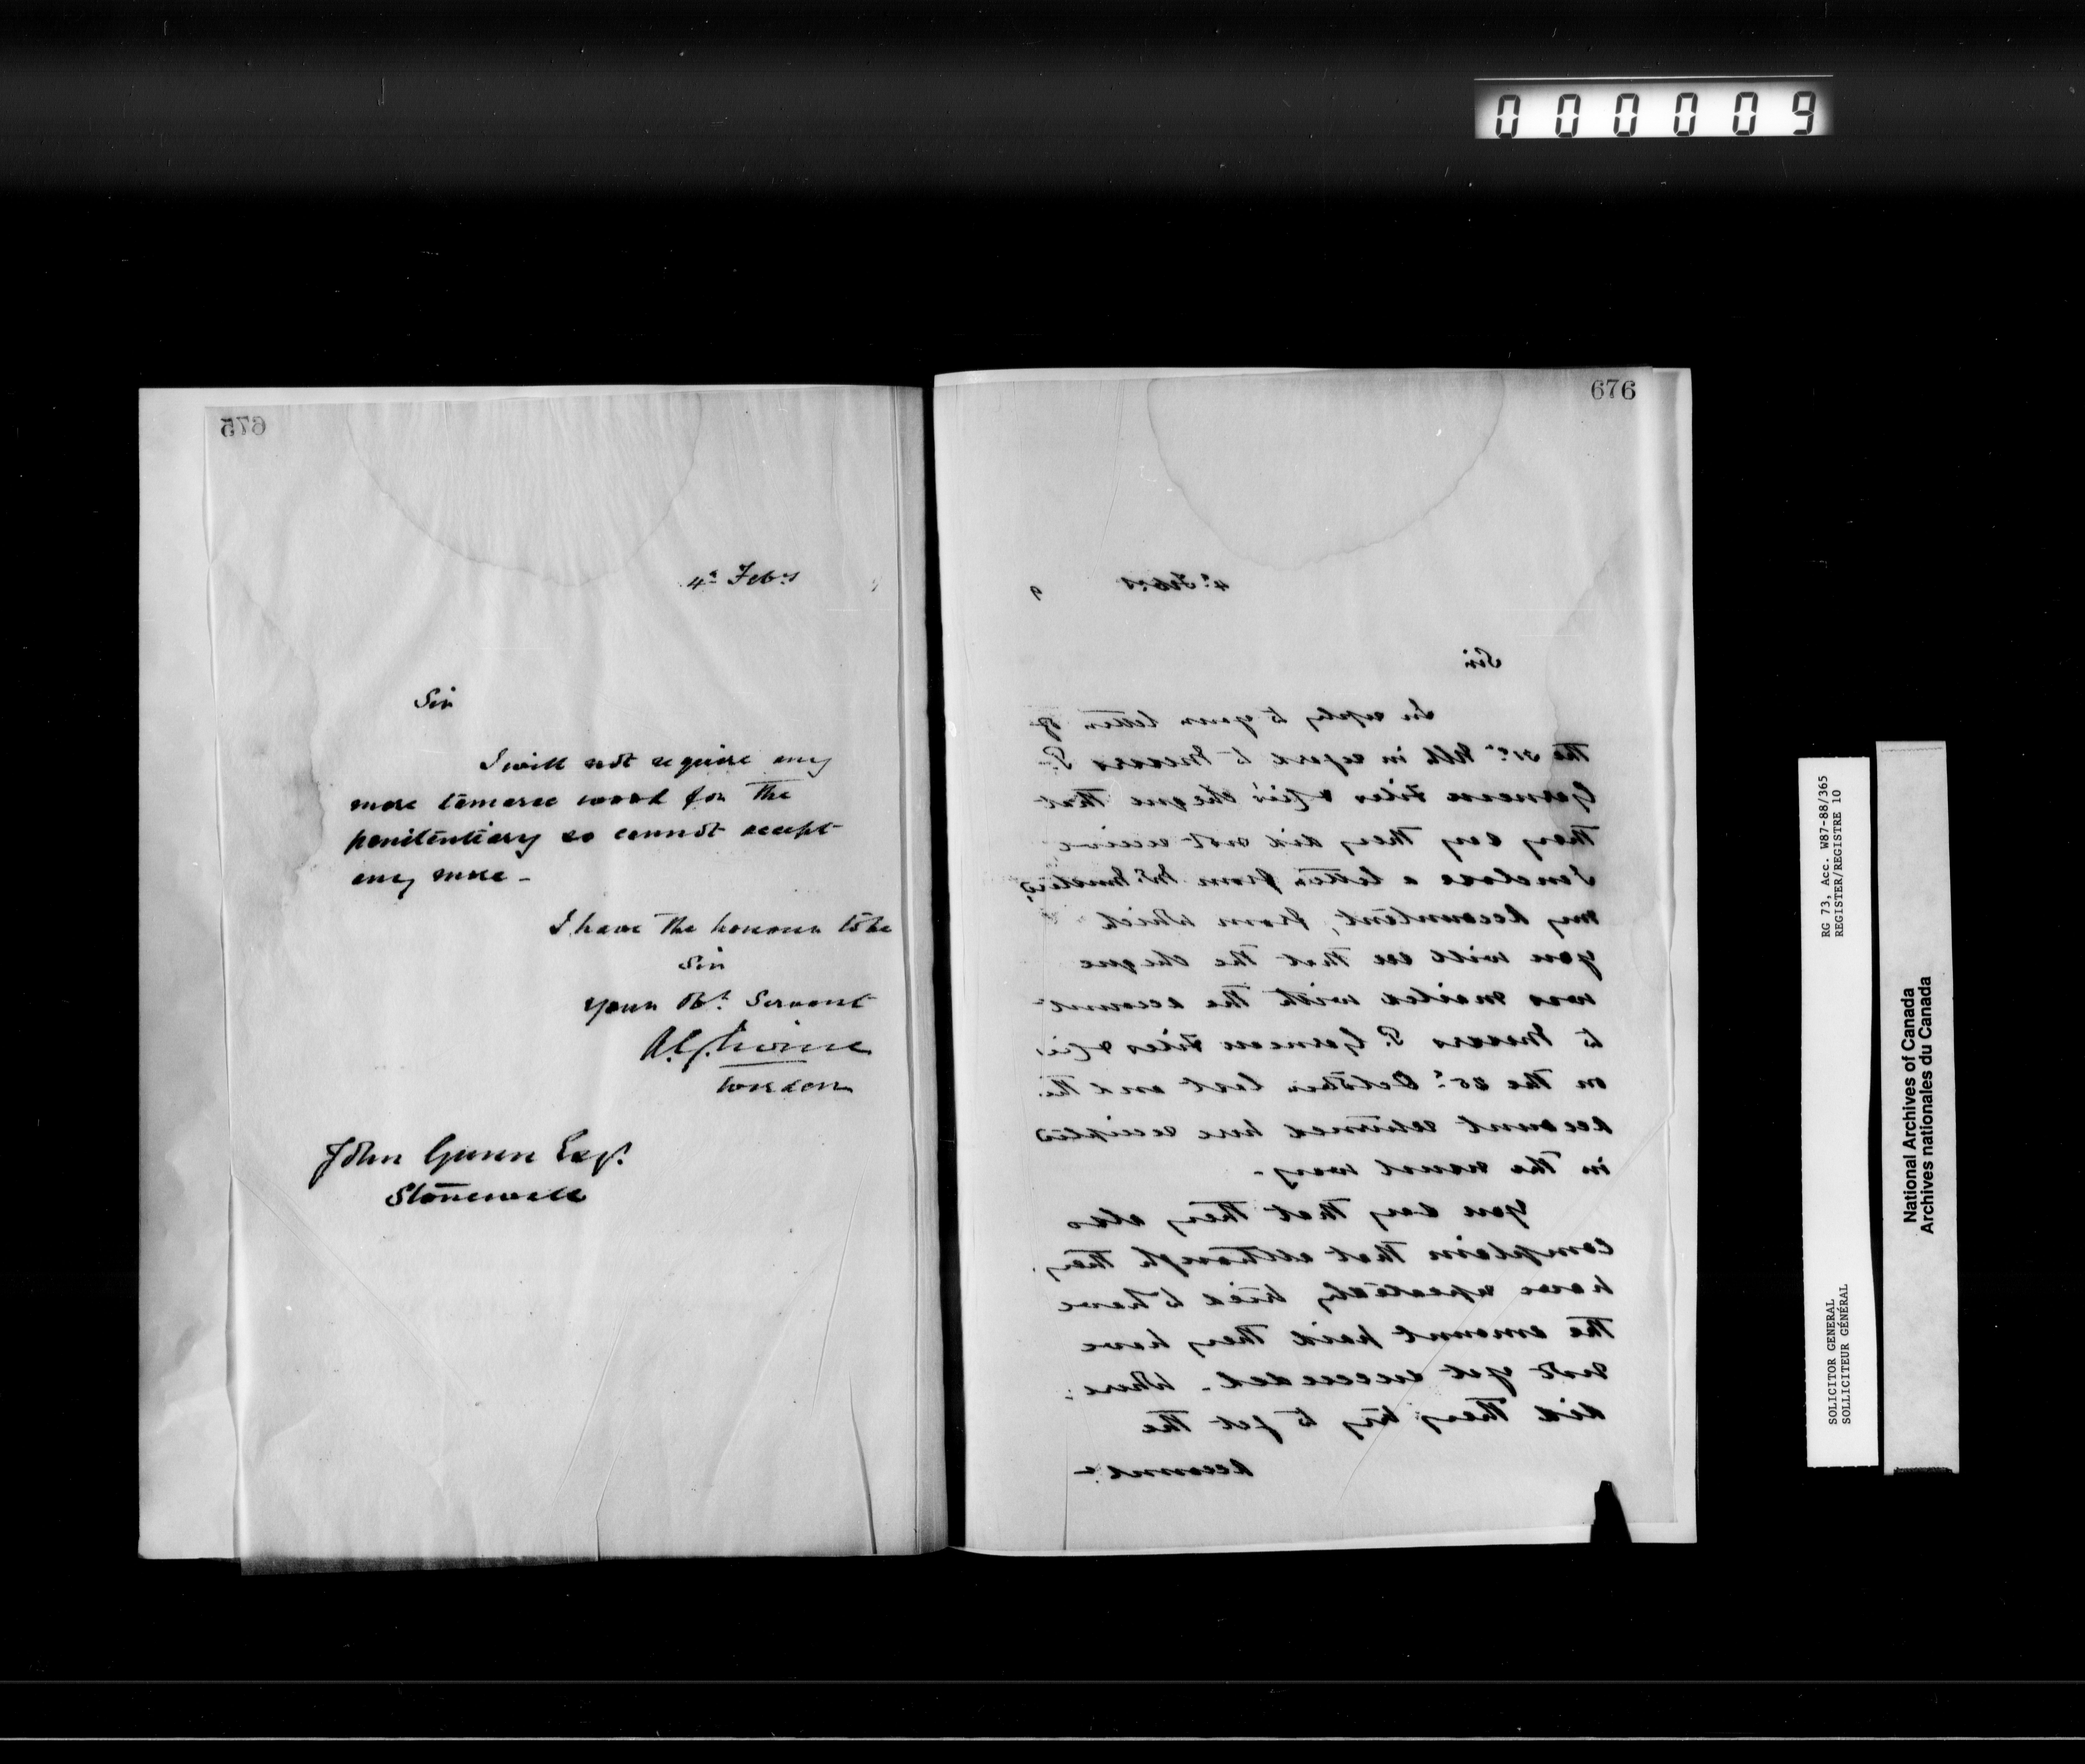 000009
675
4th Feby
Sir
I will not require any
more tamarac wood for the
penitentiary so cannot accept
any more -
I have the honour to be
Sir
your Obt. Servant
Warden
John Gunn Esqr.
Stonewall
676
4th Feby 9
Sir
In reply to your letter of
the 31st Ult in regard to Messrs P.
Garneau Files & Cie's cheque that
they say they did not receive
I enclose a letter from Mr.
my Accountant, from which
you will see that the cheque
was mailed with the account
to Messrs P. Garneau Files & Cie.
on the 20th October last and the
Account returned here receipted
in the usual way -
You say that they also
complain that although they
have repeatedly tried to have
the amount paid they have
not yet succeeded - Where
did they try to get the
Account -
RG 73, Acc. W87-88/365
REGISTER/REGISTRE 10
SOLICITOR GENERAL
SOLLICITEUR GÉNÉRAL
National Archives of Canada
Archives nationales du Canada